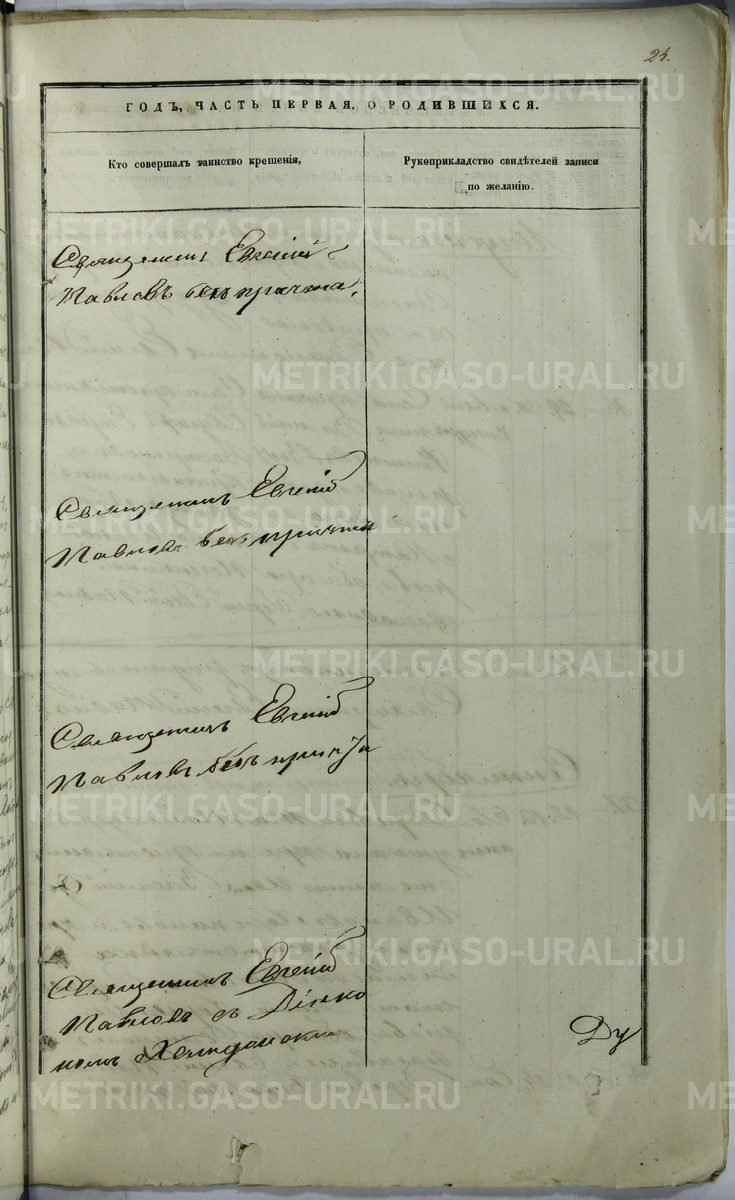 24.
ГОДЪ, ЧАСТЬ ПЕРВАЯ, О РОДИВШИХСЯ.
Кто совершалъ таинство крещенія,
Рукоприкладство свидѣтелей записи
по желанію.
Священникъ Евгеній
Павловъ безъ причта.
Священникъ Евгеній
Павловъ безъ причта
Священникъ Евгеній
Павловъ безъ причта
Священникъ Евгеній
Павловъ съ Діако
номъ
Ду
METRIKI.GASO-URAL.RU